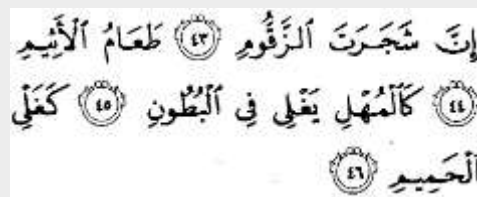 إِنَّ شَجَرَتَ ٱلزَّقُّومِ ٤٣ طَعَامُ ٱلْأَثِيمِ
٤٤ كَٱلْمُهْلِ يَغْلِى فِى ٱلْبُطُونِ ٤٥ كَغَلْىِ
ٱلْحَمِيمِ ٤٦